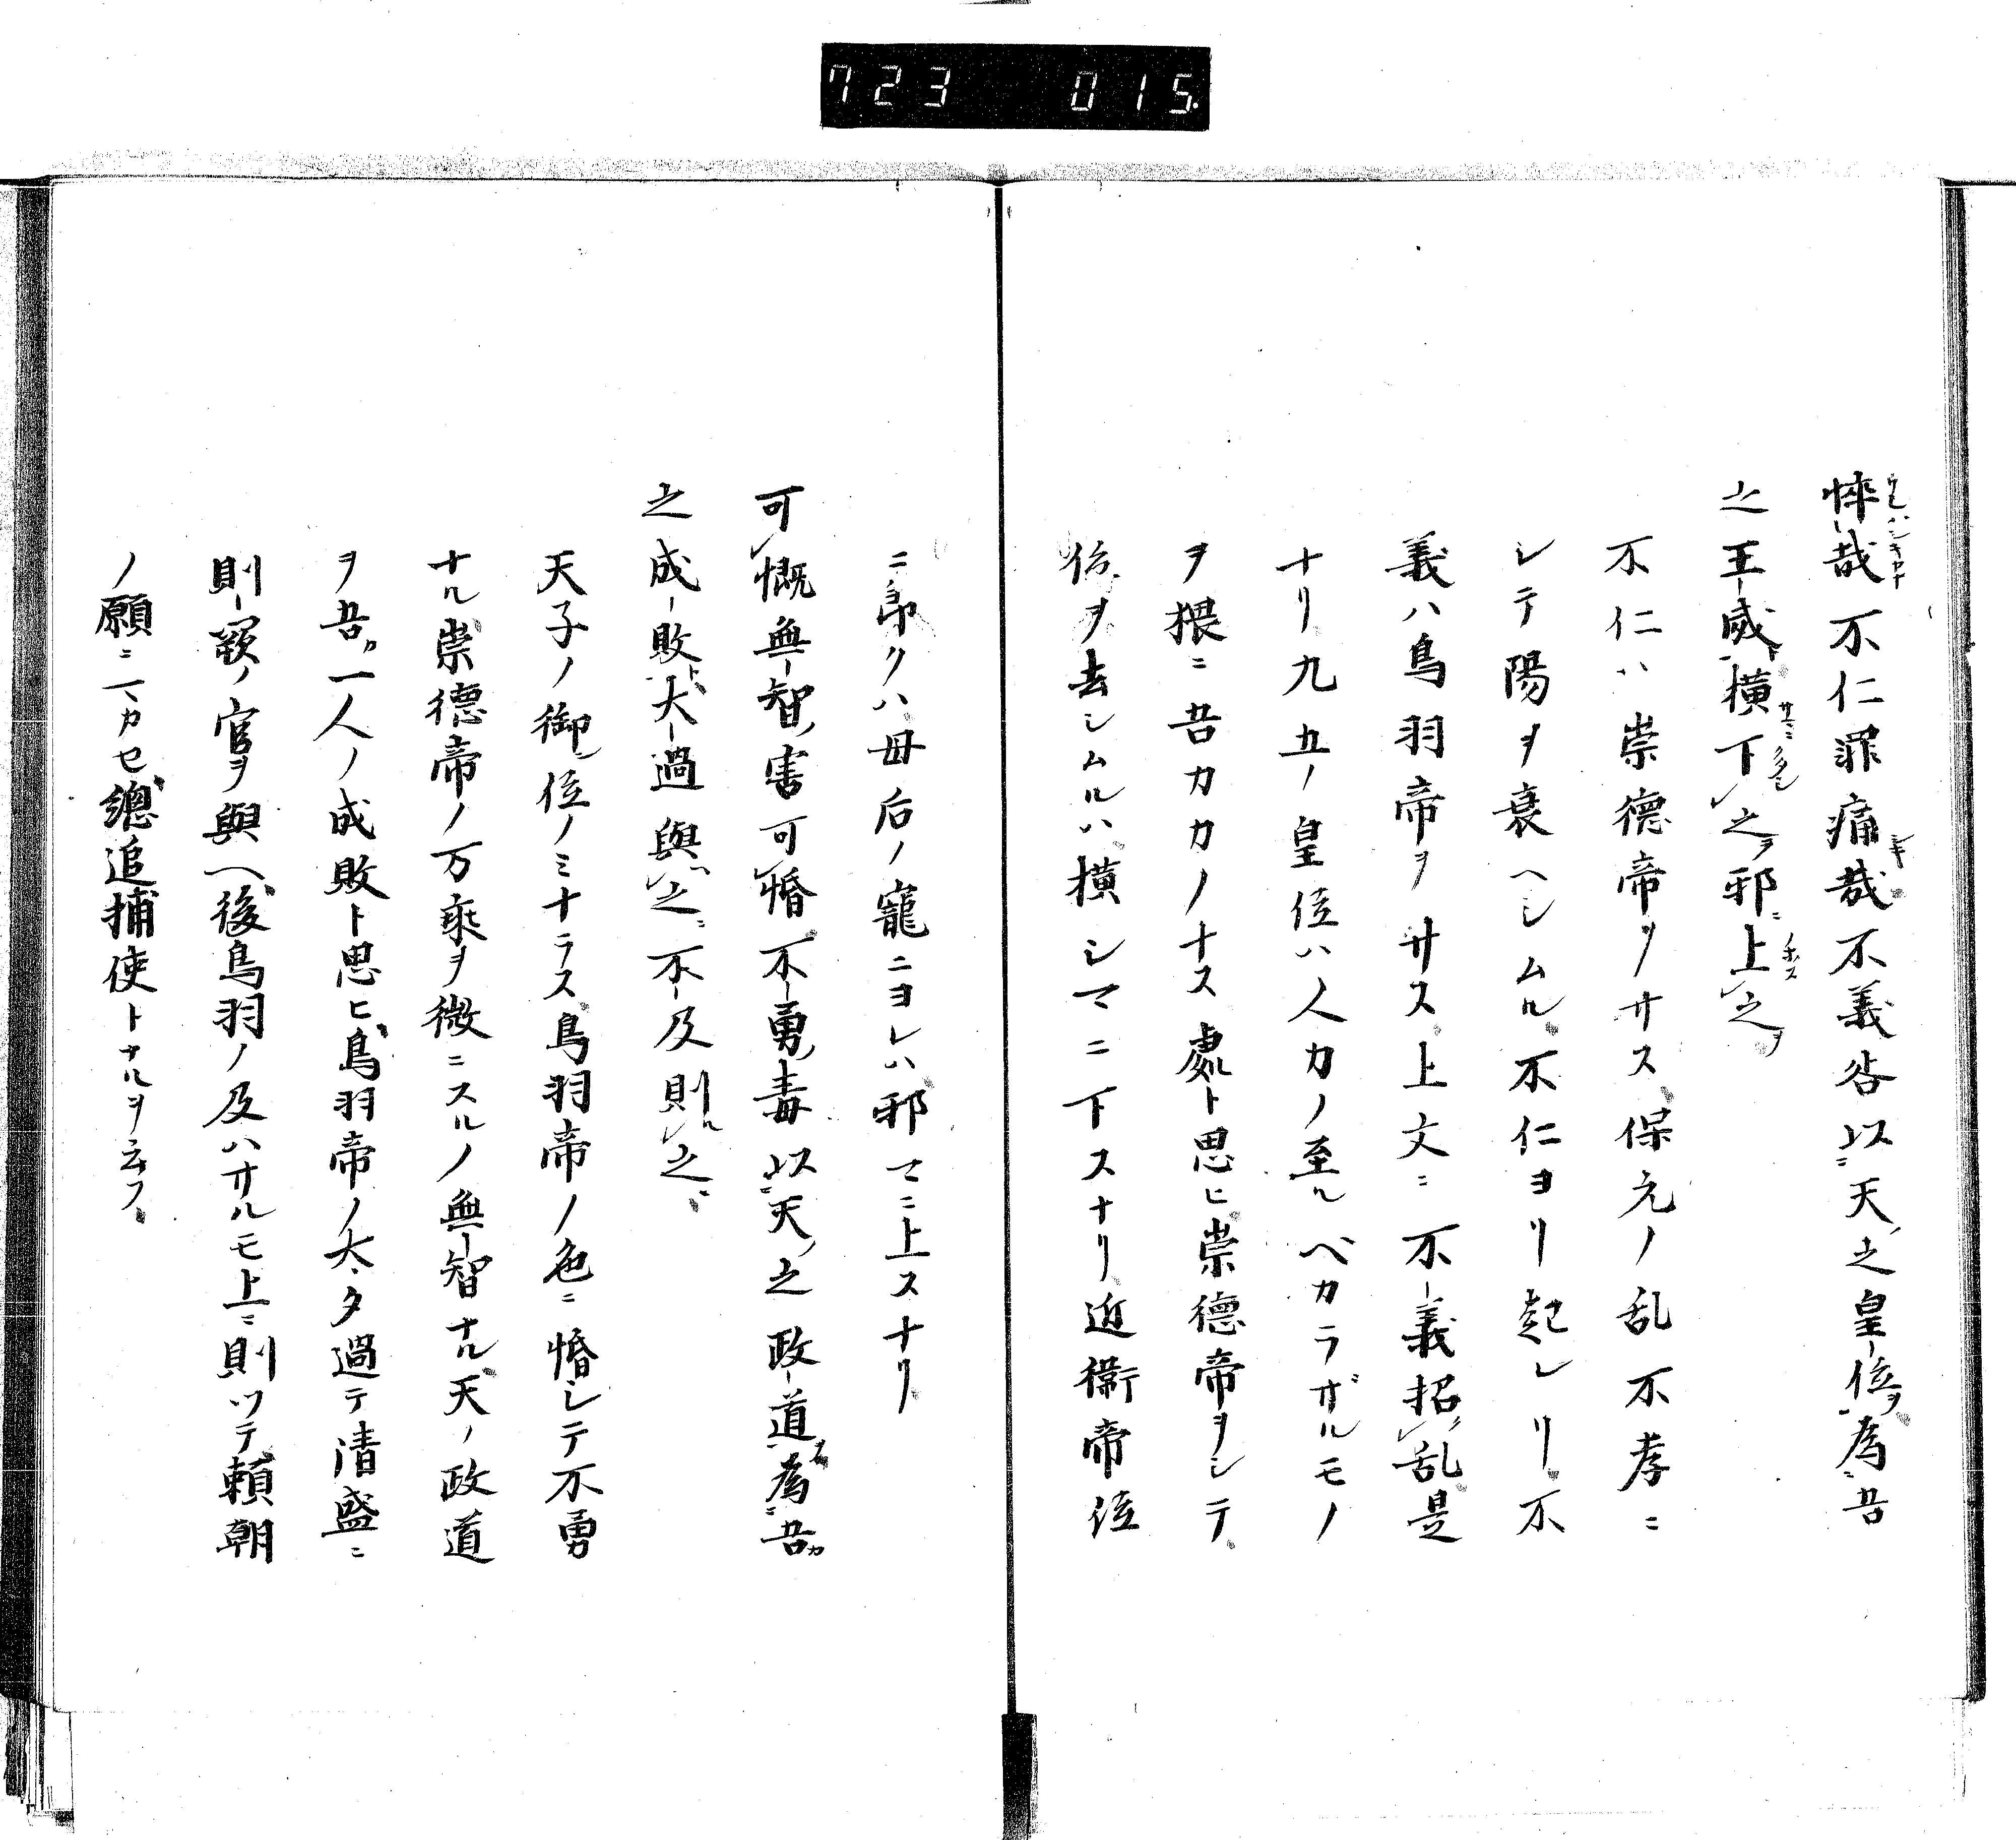 723 015
悴哉不仁罪痛哉不義咎以天之皇位為吾
之王威横下之邪上之
不仁ハ崇徳帝ヲサス保元ノ乱不孝ニ
シテ陽ヲ衰ヘシムル不仁ヨリ起レリ不
義ハ鳥羽帝ヲサス上文ニ不義招乱是
ナリ九五ノ皇位ハ人力ノ至ルベカラザルモノ
ヲ猥ニ吾カカノナス處ト思ヒ崇徳帝ヲシテ
位ヲ去シムルハ横シマニ下スナリ近衛帝位
ニ即クハ母后ノ寵ニヨレハ邪マニ上スナリ
可慨無智害可惛不勇毒以天之政道為吾カ
之成敗大過與之不及則之
天子ノ御位ノミナラス鳥羽帝ノ色ニ惛シテ不勇
ナル崇徳帝ノ万乘ヲ微ニスルノ無智ナル天ノ政道
ヲ吾カ一人ノ成敗ト思ヒ鳥羽帝ノ大タ過テ清盛ニ
則闕ノ官ヲ與ヘ後鳥羽ノ及ハサルモ上ニ則ツテ頼朝
ノ願ニマカセ總追捕使トナルヲ云フ